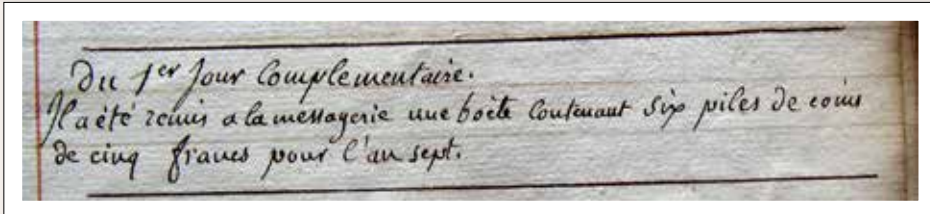 Du 1er Jour Complementaire.
Il a été remis a la messagerie une boëte contenant six piles de coins
de cinq francs pour l'an sept.